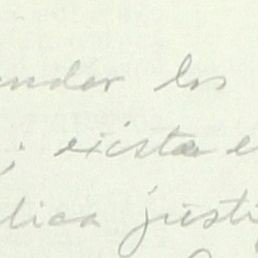 ender los
; exista e
lica justi